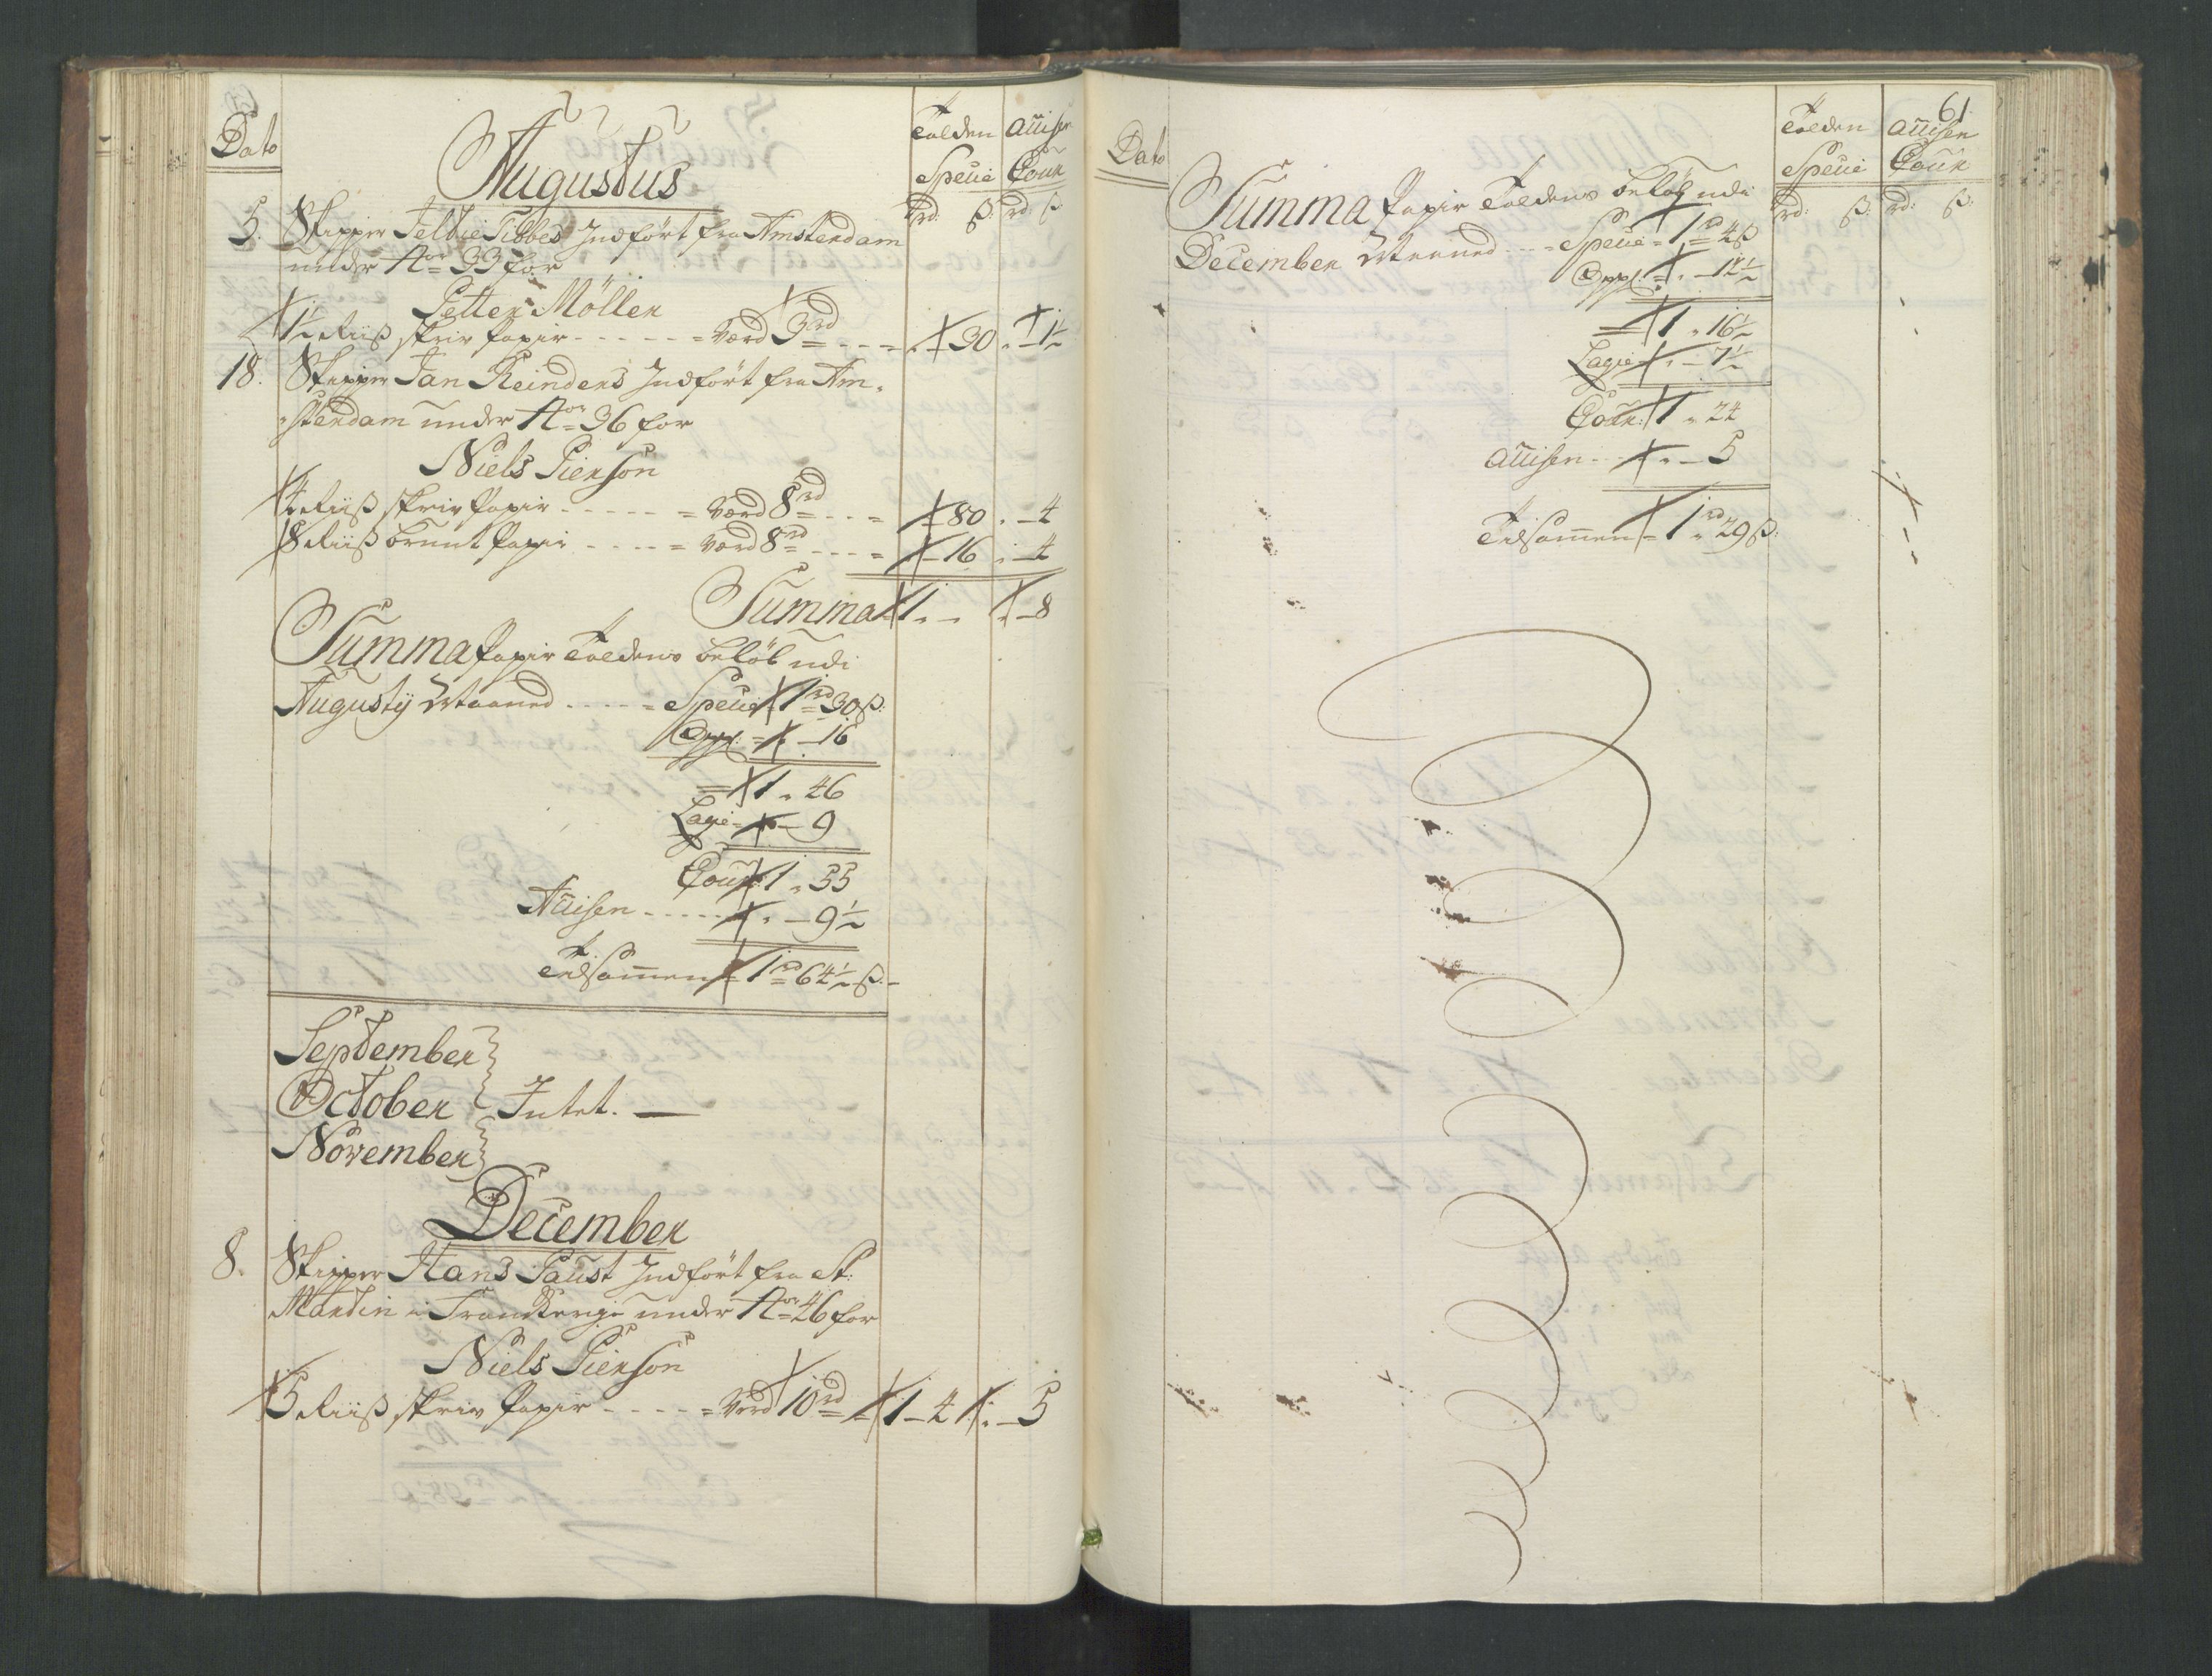 Dato
Augustus
Tolden Accisen
Specie Cour
rd: ß: rd ß
5. Skipper Jeltie Tibbes Indført fra Amsterdam
under No 33 for
Petter Møller
1½ Riiß skriv Papir - - - - - = Værd 3 rd = - - - = " 30 " - 1½
18. Skipper Jan Reinders Indført fra Am-
sterdam under No 36 for
Niels Pierson
4 Riiß skriv Papir - - - - - = Værd 8 rd = - - - = - 80 " - 4
8 Riiß Grunt Papir - - - - = Værd 8 rd = - - - - = - 16 " - 4
Summa 1 " - " - 8
Summa Papir Toldens beløb udi
Augustij Maaned - - - - - = Specie 1 rd 30 ß:
Oppl: = " - 16
= 1 " 46
Lagie = " - 9
Cour 1 " 55
Accisen - - - - - " - 9½
Tilsammen = 1 rd 64½ ß: -
September
October Intet. —
November
December
8. Skipper Hans Paust Indført fra St:
Martin i Frankerige under No 46 for
Niels Pierson
5 Riiß skriv Papir - - - - - = Værd 10 rd = 1 - 4 " - 5
61
Dato
Tolden Accisen
Specie Cour
rd: ß: rd: ß:
Summa Papir Toldens beløb udi
December Maaned - - - = Specie = 1 rd 4 ß
Oppl: = " - 12½
= 1 " 16½
Lagie = " - 7½
Cour: 1 " 24
Accisen - - " - 5
Tilsammen = 1 rd 29 ß: